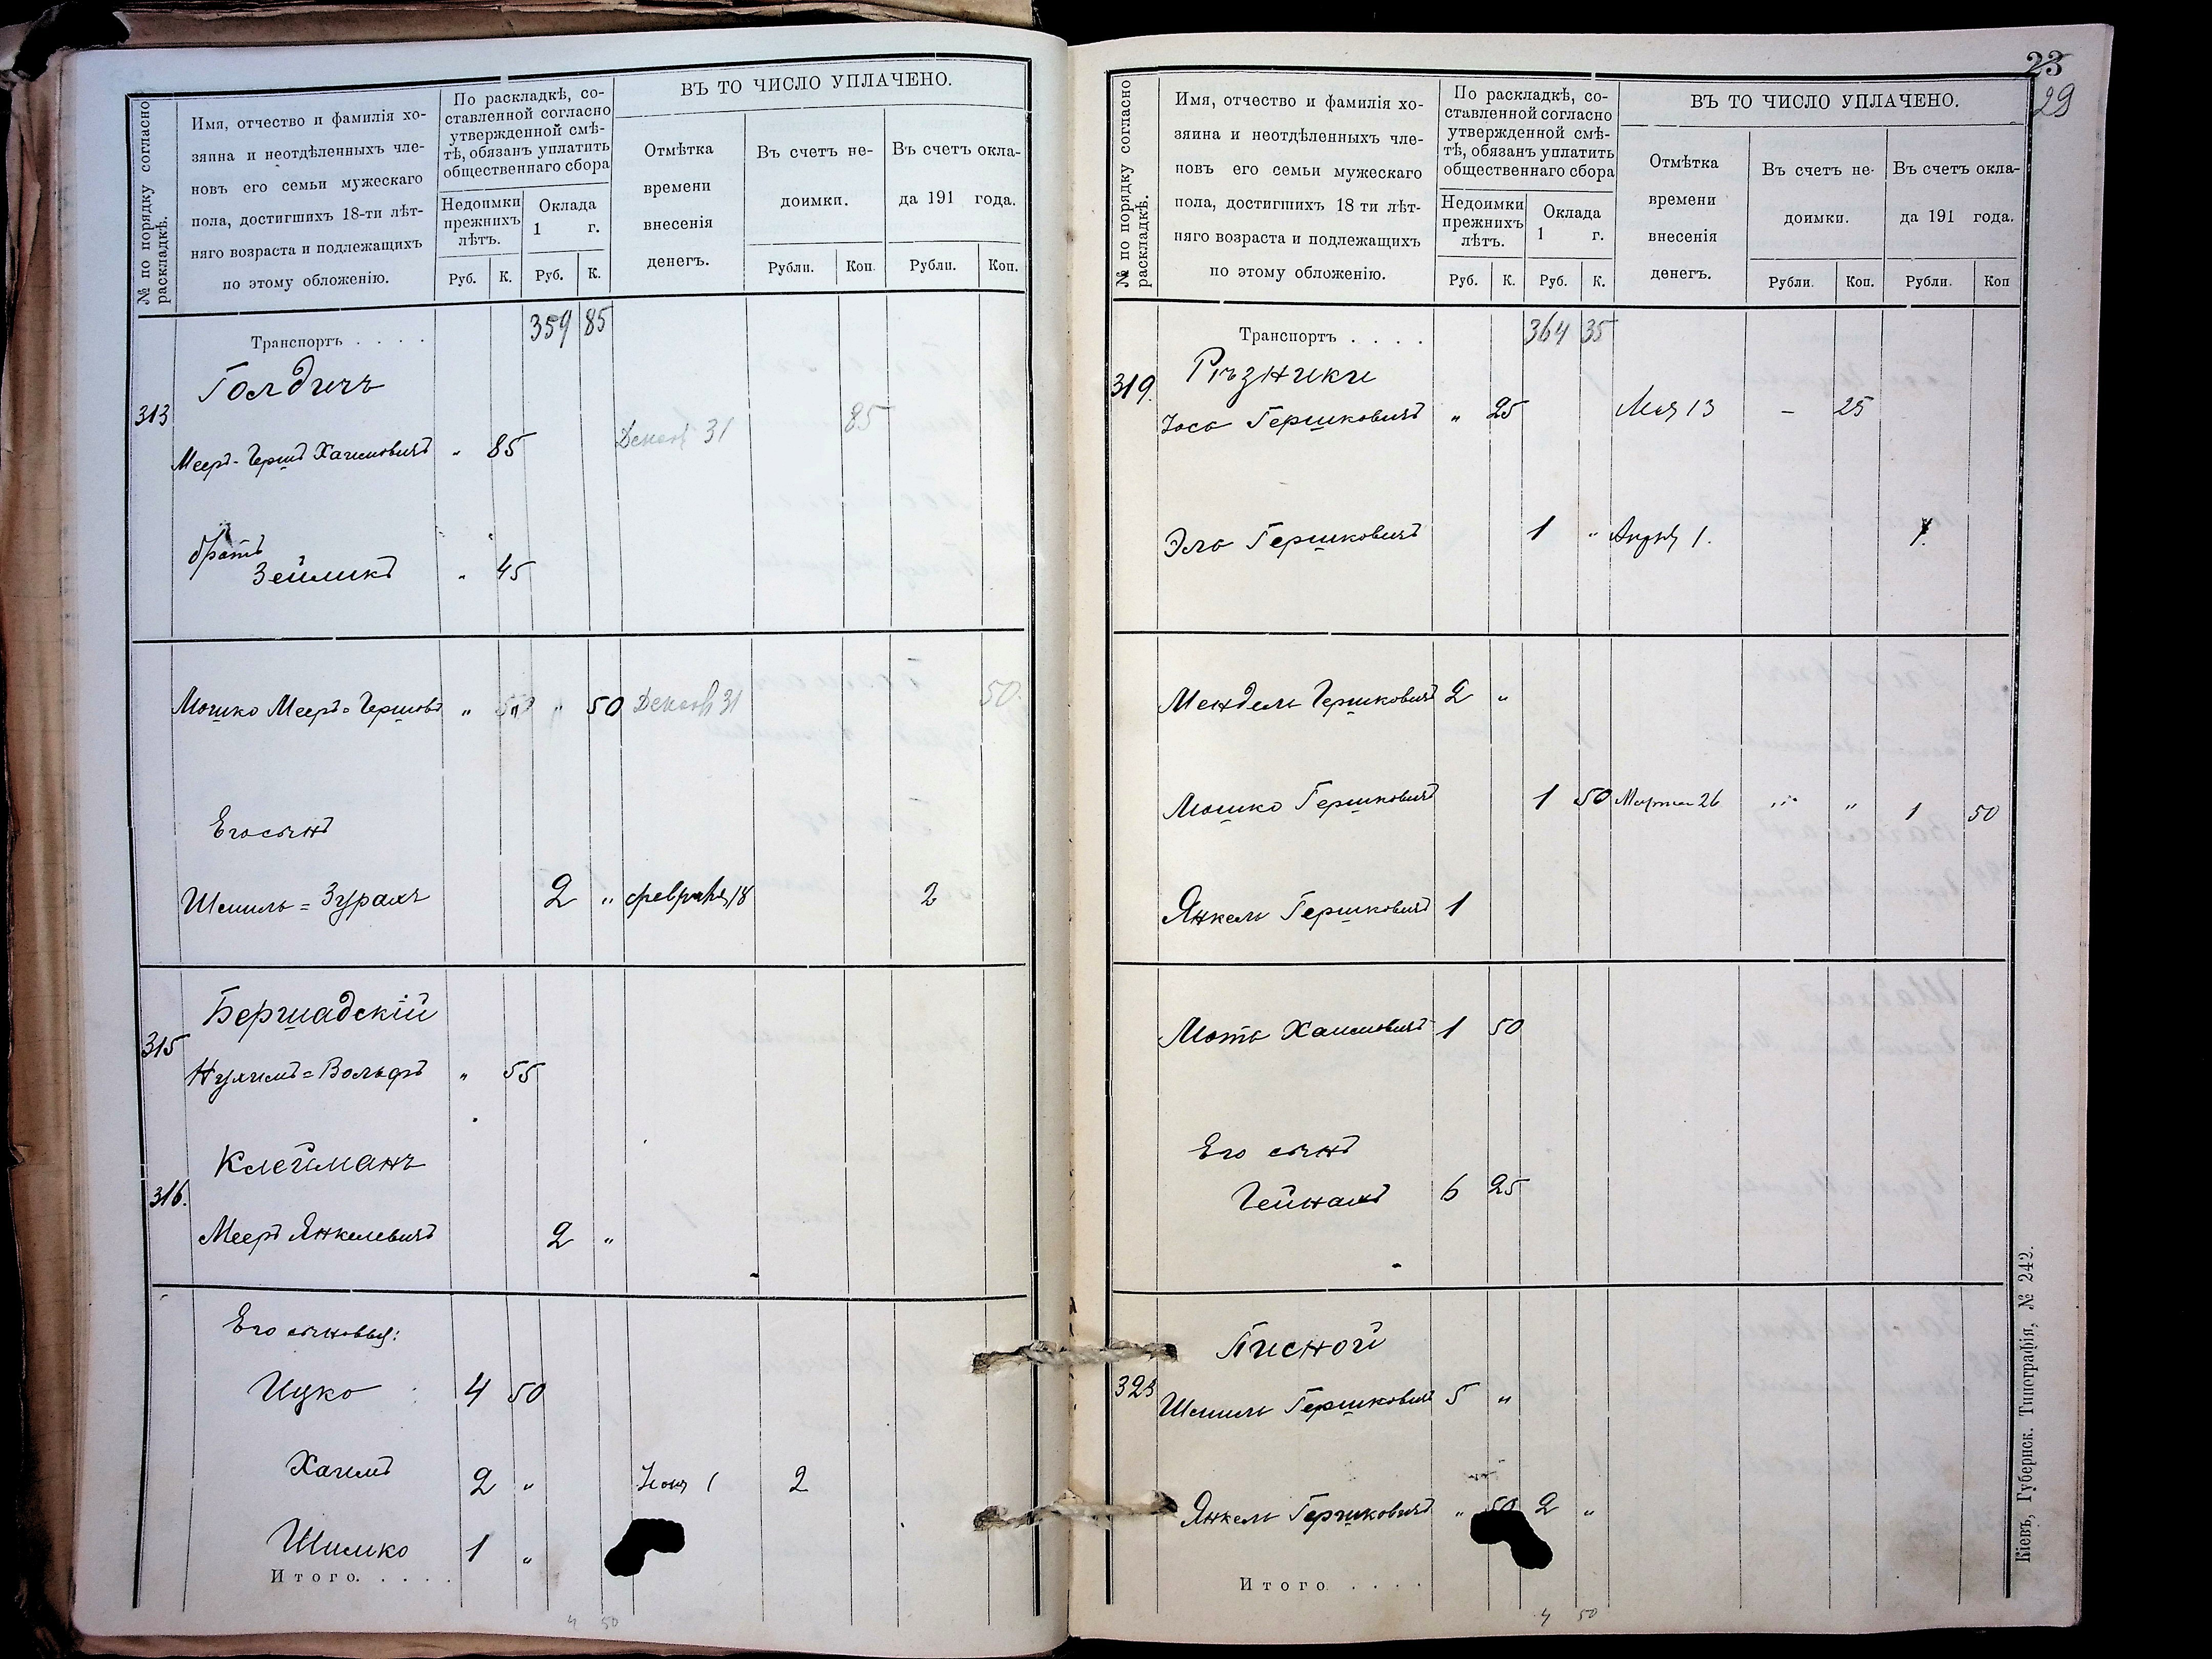 ВЪ ТО ЧИСЛО УПЛАЧЕНО.
№ по порядку согласно
раскладкѣ.
Имя, отчество и фамилія хо-
зяина и неотдѣленныхъ чле-
новъ его семьи мужескаго
пола, достигшихъ 18-ти лѣт-
няго возраста и подлежащихъ
по этому обложенію.
По раскладкѣ, со-
ставленной согласно
утвержденной смѣ-
тѣ, обязанъ уплатить
общественнаго сбора
Недоимки
прежнихъ
лѣтъ.
Оклада
1 г.
Отмѣтка
времени
внесенія
денегъ.
Въ счетъ не-
доимки.
Въ счетъ окла-
да 191 года.
Руб. К. Руб. К. Рубли. Коп. Рубли. Коп.
Транспортъ . . . . 359 85
Голдичъ
313
Мееръ-Гершъ Хаимовичъ " 85 Декаб 31 85
братъ
Зейликъ " 45
Мошко Мееръ=Гершов " " 50 Декаб 31 50
Его сынъ
Шмиль=Зурахъ 2 " февраля 18 2
Бершадскій
315
Нухимъ=Вольфъ " 55
Клейманъ
316.
Мееръ Янкелевичъ 2 "
Его сыновья:
Ицко 4 50
Хаимъ 2 " Іюня 1 2
Шимко 1 "
Итого. . . . .
4 50
23
29
ВЪ ТО ЧИСЛО УПЛАЧЕНО.
№ по порядку согласно
раскладкѣ.
Имя, отчество и фамилія хо-
зяина и неотдѣленныхъ чле-
новъ его семьи мужескаго
пола, достигшихъ 18 ти лѣт-
няго возраста и подлежащихъ
по этому обложенію.
По раскладкѣ, со-
ставленной согласно
утвержденной смѣ-
тѣ, обязанъ уплатить
общественнаго сбора
Недоимки
прежнихъ
лѣтъ.
Оклада
1 г.
Отмѣтка
времени
внесенія
денегъ.
Въ счетъ не-
доимки.
Въ счетъ окла-
да 191 года.
Руб. К. Руб. К. Рубли. Коп. Рубли. Коп
Транспортъ . . . . 364 35
Рѣзники
319.
Іосъ Гершковичъ " 25 Мая 13 – 25
Эль Гершковичъ 1 " 1. 1.
Мендель Гершковичъ 2 "
Мошко Гершковичъ 1 50 Марта 26 " " 1 50
Янкель Гершковичъ 1
Мотя Хаимовичъ 1 50
Его сынъ
Гейнахъ 6 25
Писной
323
Шмиль Гершковичъ 5 "
Янкель Гершковичъ " 50 2 "
Итого . . . .
4 50
Кіевъ, Губернск. Типографія, № 242.